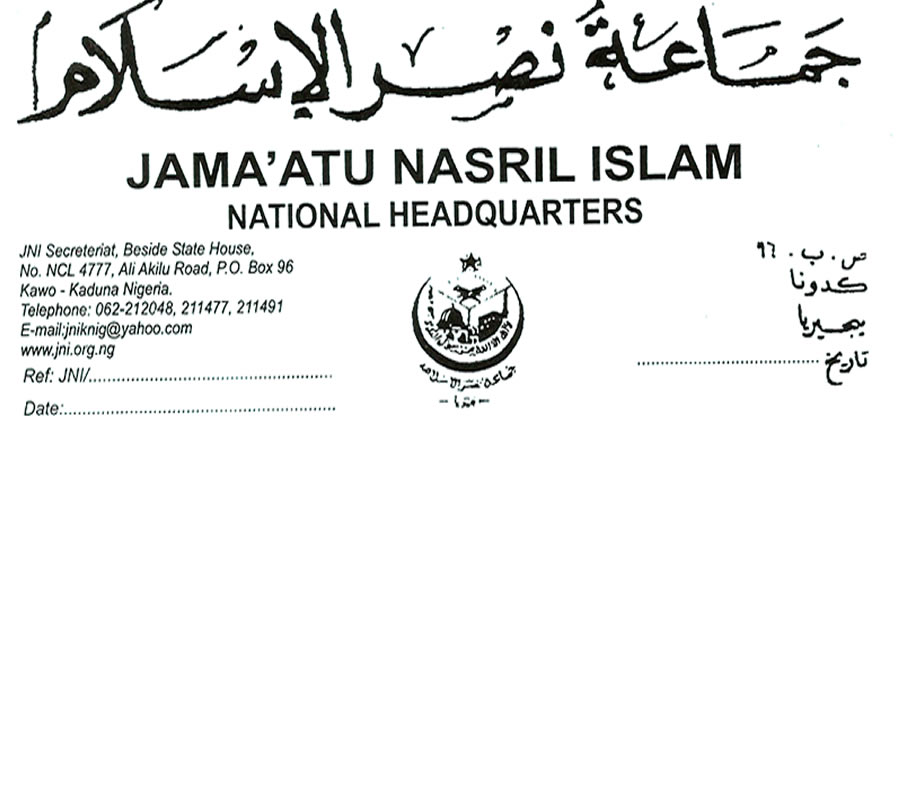 جَمَاعَةُ نَصْرِ الإِسْلَام
JAMA'ATU NASRIL ISLAM
NATIONAL HEADQUARTERS
JNI Secreteriat, Beside State House,
No. NCL 4777, Ali Akilu Road, P.O. Box 96
Kawo - Kaduna Nigeria.
Telephone: 062-212048, 211477, 211491
E-mail:jniknig@yahoo.com
www.jni.org.ng
Ref: JNI/..............................................................
Date:.....................................................................
جماعة نصر الإسلام
ص . ب . ٩٦
كدونا
نيجيريا
تاريخ ..............................................